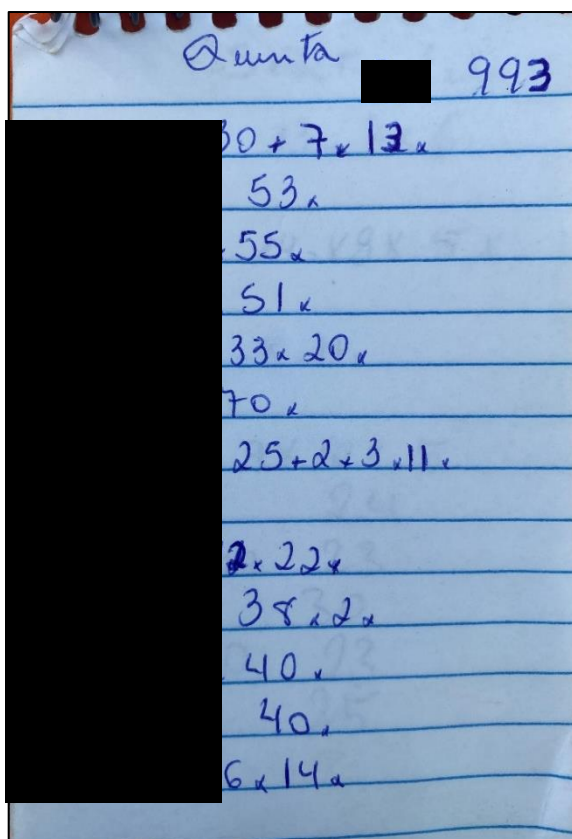 Quinta 993
30 + 7 x 13 x
53 x
55 x
51 x
33 x 20 x
70 x
25 + 2 x 3 x 11 x
2 x 22 x
38 x 2 x
40 x
40 x
6 x 14 x